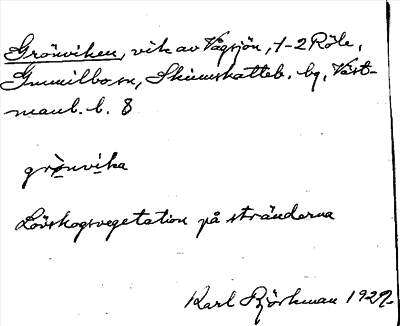 Grönviken, vik av Vågsjön, 1-2 Röle,
Gunnilbo sn, Skinnskatteb. bg, Väst-
manl. l. 8
grönvika
Lövskogsvegetation på stränderna
Karl Björkman 1927